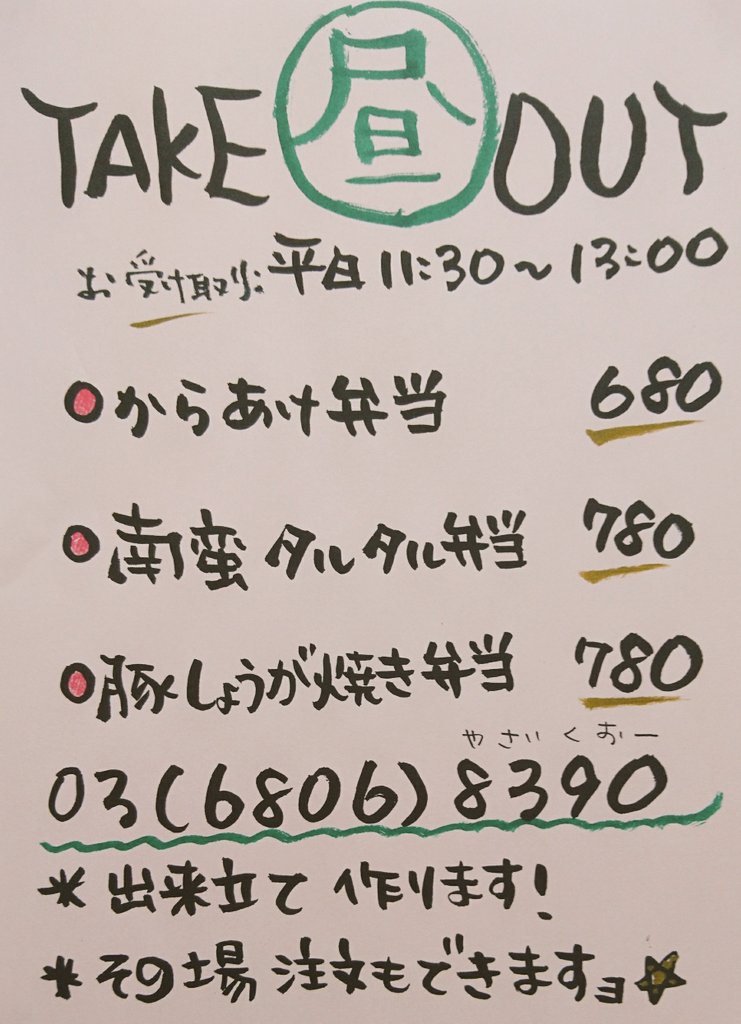 TAKE 昼 OUT
お受け取り: 平日 11:30〜13:00
からあげ弁当 680
南蛮タルタル弁当 780
豚しょうが焼き弁当 780
やさいくおー
03(6806)8390
* 出来立て 作ります!
* その場 注文もできますョ